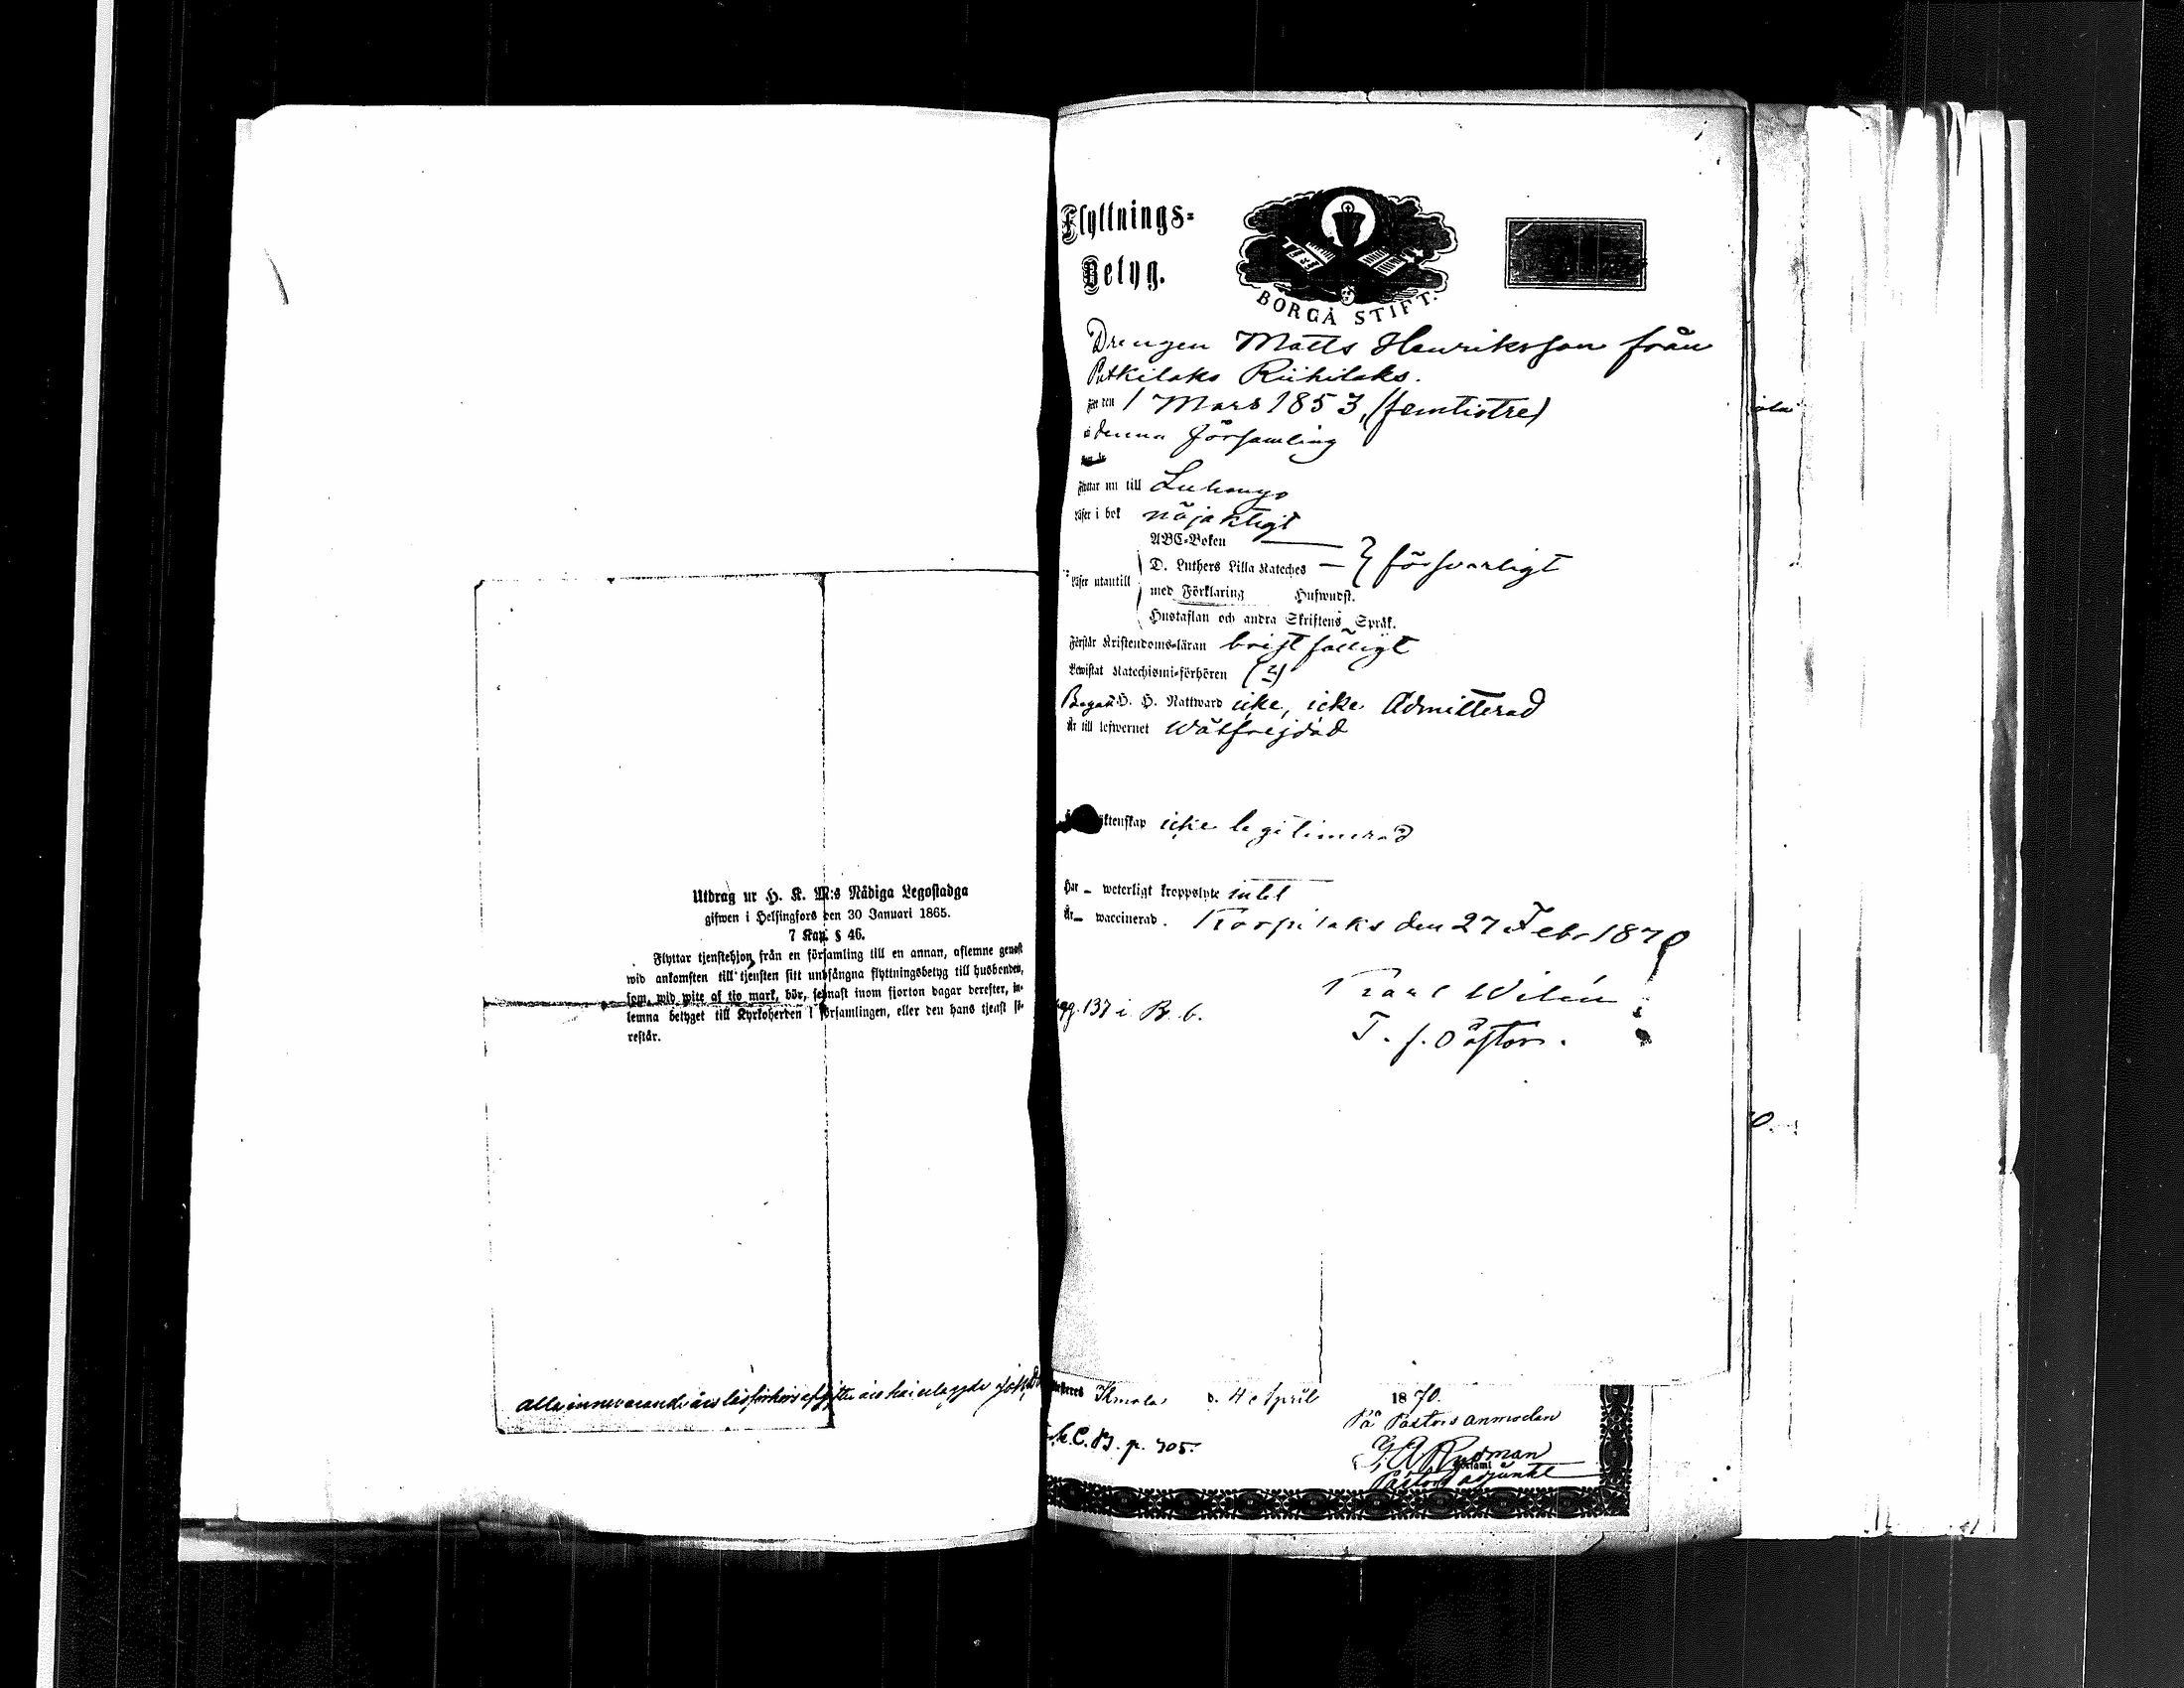 Utdrag ur H. K. M:s Nådiga Legostadga
gifwen i Helsingfors den 30 Januari 1865.
7 Kap. § 46.
Flyttar tjenstehjon från en församling till en annan, aflemne genast
wid ankomsten till tjensten sitt undfångna flyttningsbetyg till husbonden,
som, wid wite af tio mark, bör, sednast inom fjorton dagar derefter, in-
lemna betyget till Kyrkoherden i församlingen, eller den hans tjenst fö-
restår.
alla innevarande års läsförhörs afgifter äro här erlagde
Flyttnings-
Betyg.
BORGÅ STIFT.
Drengen Matts Henriksson från
Putkilaks Riihilaks.
Född den 1 Mars 1853, (femtiotre)
i denna församling
Flyttar nu till Luhango
Läser i bok nöjaktigt
ABC-Boken
D. Luthers Lilla Kateches } försvarligt
Läser utantill
med Förklaring Hufwudst.
Hustaflan och andra Skriftens Språk.
Förstår Kristendoms-läran bristfälligt
Bewistat Katechismi-förhören (2)
Begått H. H. Nattward icke, icke Admitterad
Är till lefwernet Wälfrejdad
äktenskap icke legitimerad
Har — weterligt kroppslyte intet
Är — waccinerad. Korpilaks den 27 Febr 1870
Karl Wilén
pag. 137 i B. b.
T. f. Pastor.
Kmola d. 4 April 1870.
På Pastors anmodan
K.C.B. p. 705.
G. A. Rudman
Pastors adjunkt